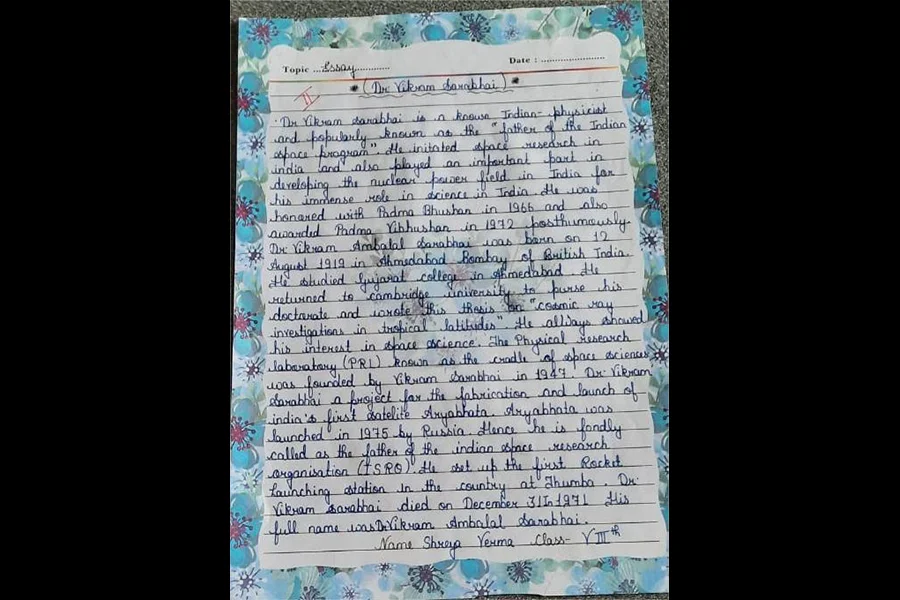 Topic ...Essay............ Date : ........................
(Dr Vikram Sarabhai)
II
Dr Vikram Sarabhai is a known Indian- physicist
and popularly known as the "father of the Indian
space program". He initated space research in
india and also played an important part in
developing the nuclear power field in India for
his immense role in science in India. He was
honored with Padma Bhushan in 1966 and also
awarded Padma Vibhushan in 1972 posthumously.
Dr. Vikram Ambalal Sarabhai was born on 12
August 1919 in Ahmedabad Bombay of British India.
He studied Gujarat college in Ahmedabad. He
returned to cambridge university to purse his
doctorate and wrote this thesis on "cosmic ray
investigations in tropical latitudes". He allways showed
his interest in space science. The Physical research
laboratory (PRL) known as the cradle of space sciences
was founded by Vikram Sarabhai in 1947. Dr. Vikram
Sarabhai a project for the fabrication and launch of
india's first satelite Aryabhata. Aryabhata was
launched in 1975 by Russia. Hence he is fondly
called as the father of the indian space research
organisation (ISRO). He set up the first Rocket
Launching station in the country at Thumba. Dr.
Vikram Sarabhai died on December 31In 1971 His
full name was Dr Vikram Ambalal Sarabhai.
Name Shreya Verma Class- VIIIth